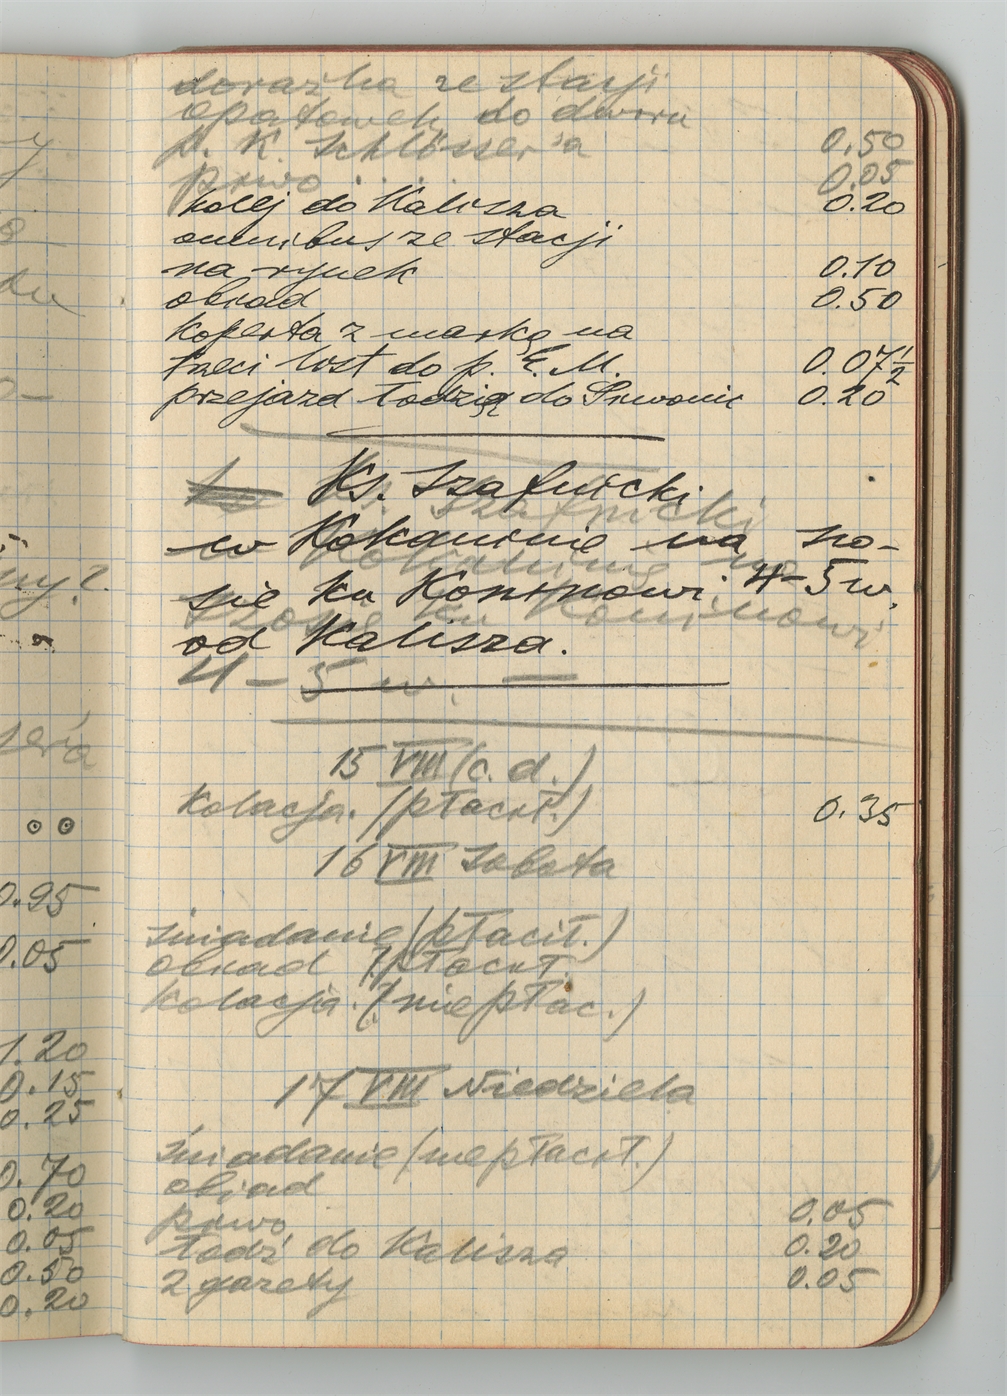 y
o
du
0-
ny?
seria
0.95
0.05
1.20
0.15
0.25
0.70
0.20
0.05
0.50
0.20
dorażka ze stacji
Opatówek do dworu
p. K. Schlösser'a 0.50
piwo . . . . 0.05
kolej do Kalisza 0.20
omnibus ze stacji
na rynek 0.10
obiad 0.50
koperta z marką na
trzeci list do p. E. M. 0.07½
przejazd łodzią do Piwonic 0.20
Ks. Szafnicki
w Kokaninie na szo-
sie ku Koninowi 4-5 w.
od Kalisza.
Szafnicki
w Kokaninie na
szosie ku Koninowi
4-5 w. —
15 VIII (c. d.)
Kolacja. (płacił.) 0.35
16 VIII Sobota
śniadanie (płacił.)
obiad (płacił.
kolacja. (nie płac.)
17 VIII Niedziela
śniadanie (nie płacił.)
obiad
piwo 0.05
łodź do Kalisza 0.20
2 gazety 0.05